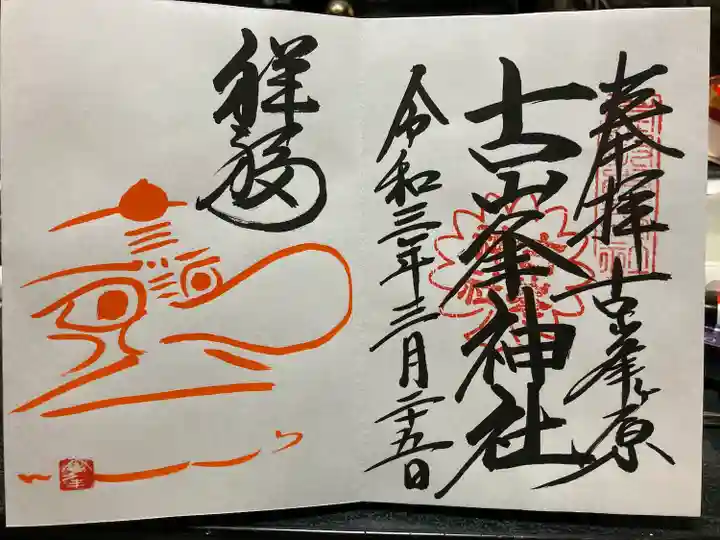 奉拝 古峯ヶ原
古峯神社
令和三年三月二十五日
祥福